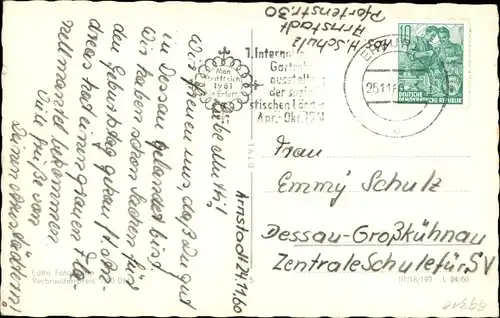 Abs. H. Schulz
Arnstadt
Pfortenstr. 30
Arnstadt 24.11.60
Liebe Mutti!
Wir freuen uns, daß Du gut
in Dessau gelandet bist.
Wir haben schon Sachen für
den Geburtstag gekauft. An-
dreas hat einen grauen
bekommen
Viele Grüße von
Deinen Arnstädtern!
Man
trifft sich
1961
in Erfurt
1. Internat
Gartenb
ausstellun
der sozia
stischen Länder
Apr.-Okt. 1961
ERFURT
25.11.60
10
DEUTSCHE
DEMOKRATISCHE REPUBLIK
Frau
Emmy Schulz
Dessau-Großkühnau
Zentrale Schule für SV
Echte Foto
Verbraucherpreis
III/18/197 L 24/60